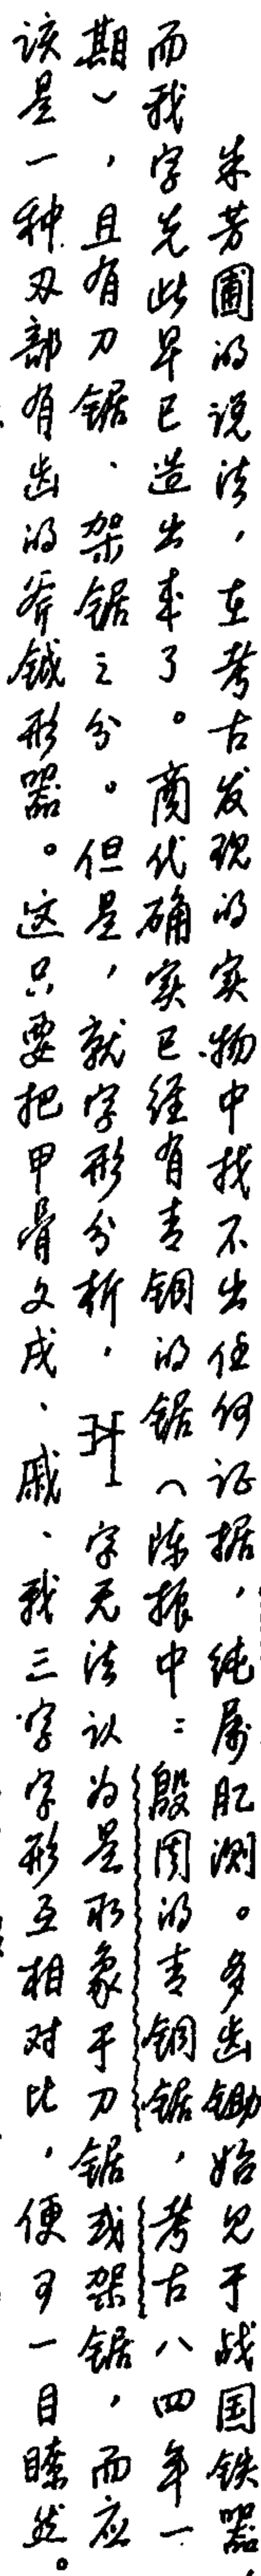 朱芳圃的说法，在考古发现的实物中找不出任何证据，纯属肊测。多齿锄始见于战国铁器，
而我字先此早已造出来了。商代确实已经有青铜的锯（陈振中：殷周的青铜锯，考古八四年一
期），且有刀锯、架锯之分。但是，就字形分析，字无法认为是取象于刀锯或架锯，而应
该是一种刃部有齿的斧钺形器。这只要把甲骨文戌、戚、我三字字形互相对比，便可一目瞭然。